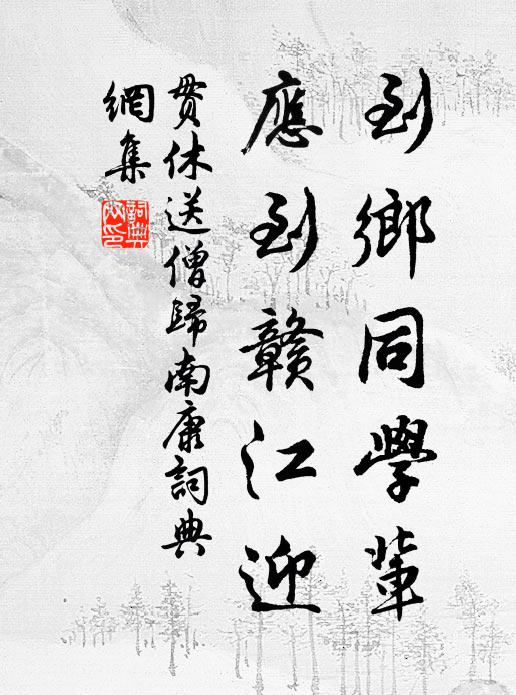 到鄉同學輩
應到贛江迎
貫休送僧歸南康詞典
網集
詞典網印